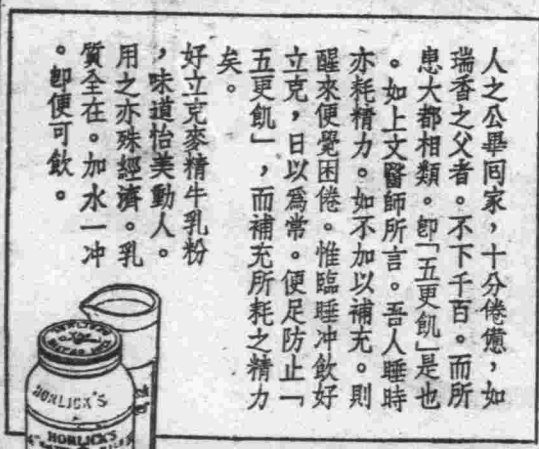 人之公畢囘家，十分倦憊，如
瑞香之父者。不下千百。而所
患大都相類。卽「五更飢」是也
。如上文醫師所言。吾人睡時
亦耗精力。如不加以補充。則
醒來便覺困倦。惟臨睡冲飲好
立克，日以爲常。便足防止「
五更飢」，而補充所耗之精力
矣。
好立克麥精牛乳粉
，味道怡美動人。
用之亦殊經濟。乳
質全在。加水一冲
。卽便可飲。
HORLICK'S
HORLICK'S